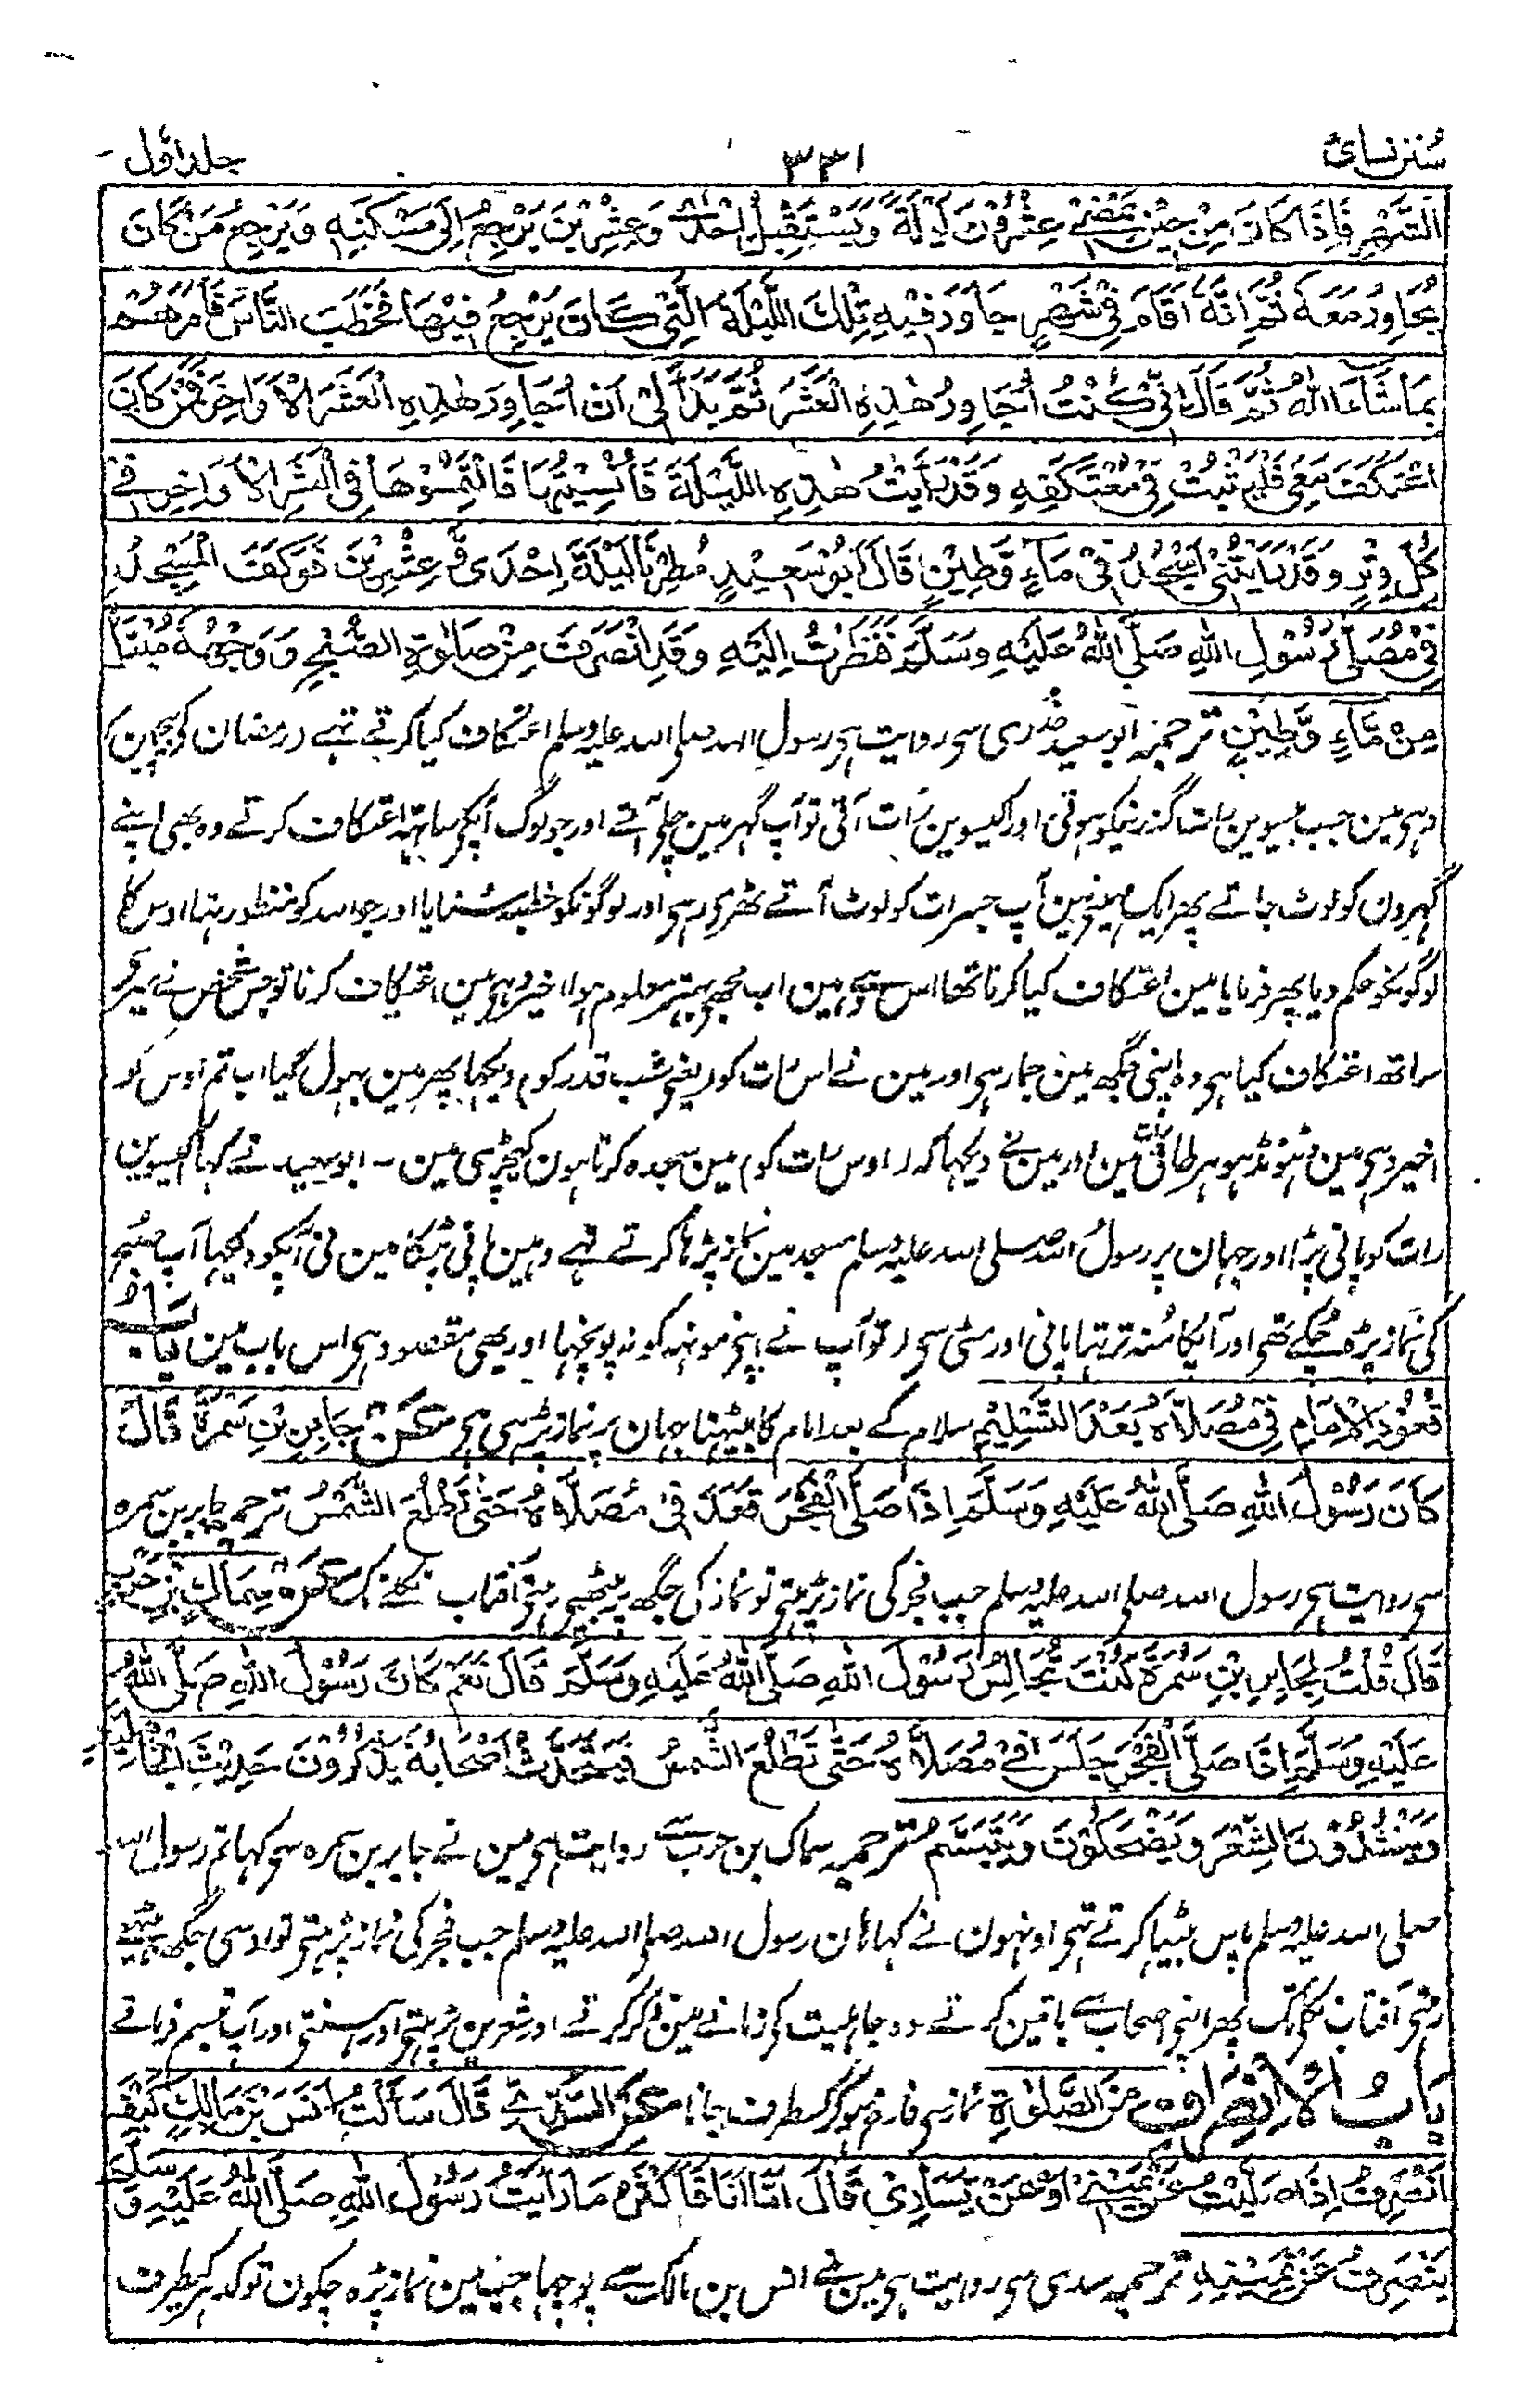 سنن نسائی ۳۳۱ جلد اول
الشَّهْرِ فَإِذَا كَانَ مِنْ حِيْنِ تَمْضِيْ عِشْرُوْنَ لَيْلَةً وَّيَسْتَقْبِلُ اِحْدٰى وَعِشْرِيْنَ يَرْجِعُ اِلٰى مَسْكَنِهٖ وَيَرْجِعُ مَنْ كَانَ
يُجَاوِرُ مَعَهٗ ثُمَّ اِنَّهٗ اَقَامَ فِيْ شَهْرٍ جَاوَرَ فِيْهِ تِلْكَ اللَّيْلَةَ الَّتِيْ كَانَ يَرْجِعُ فِيْهَا فَخَطَبَ النَّاسَ فَاَمَرَهُمْ
بِمَا شَاءَ اللهُ ثُمَّ قَالَ اِنِّيْ كُنْتُ اُجَاوِرُ هٰذِهِ الْعَشَرَ ثُمَّ بَدَأَ لِيْ اَنْ اُجَاوِرَ هٰذِهِ الْعَشَرَ الْاَوَاخِرَ فَمَنْ كَانَ
اعْتَكَفَ مَعِيَ فَلْيَثْبُتْ فِيْ مُعْتَكَفِهٖ وَقَدْ رَأَيْتُ هٰذِهِ اللَّيْلَةَ فَاُنْسِيْتُهَا فَالْتَمِسُوْهَا فِي الْعَشَرِ الْاَوَاخِرِ فِيْ
كُلِّ وِتْرٍ وَقَدْ رَاَيْتُنِيْ اَسْجُدُ فِيْ مَاءٍ وَّطِيْنٍ قَالَ اَبُوْ سَعِيْدٍ مُطِرْنَا لَيْلَةَ اِحْدٰى وَّعِشْرِيْنَ فَوَكَفَ الْمَسْجِدُ
فِيْ مُصَلّٰى رَسُوْلِ اللهِ صَلَّى اللهُ عَلَيْهِ وَسَلَّمَ فَنَظَرْتُ اِلَيْهِ وَقَدِ انْصَرَفَ مِنْ صَلٰوةِ الصُّبْحِ وَوَجْهُهٗ مُبْتَلٌّ
مِنْ مَّاءٍ وَّطِيْنٍ ترجمہ ابو سعید خدری سے روایت ہے رسول اللہ صلی اللہ علیہ وسلم اعتکاف کیا کرتے تہے رمضان کے بیچ ان
دہے مین جب بیسوین رات گذرنیکو ہوتی اور اکیسوین رات آتی تو آپ گہر مین چلے آتے اور جو لوگ آپکے ساتہہ اعتکاف کرتے وہ بھی اپنے
گہرون کو لوٹ جاتے پھر ایک مہینے مین آپ جس رات کو لوٹ آتے ٹھرے رہے اور لوگونکو خطبہ سنایا اور جو اللہ کو منظور تہا اوس کا
لوگونکو حکم دیا پھر فرمایا مین اعتکاف کیا کرتا تھا اس دہے مین اب مجھے بہتر معلوم ہوا اخیر دہے مین اعتکاف کرنا تو جس شخص نے میرے
ساتھ اعتکاف کیا ہے وہ اپنی جگھ مین جما رہے اور مین نے اس رات کو (یعنے شب قدر کو) دیکہا پھر مین بہول گیا اب تم اوس کو
اخیر دہے مین ڈہونڈہو ہر طاق رات مین اور مین نے دیکہا کہ (اوس رات کو) مین سجدہ کرتا ہون کیچڑ سی مین ۔ ابو سعید نے کہا اکیسوین
رات کو پانی پڑا اور جہان پر رسول اللہ صلی اللہ علیہ وسلم مسجد مین نماز پڑہا کرتے تہے وہین پانی ٹپکا مین نے آپکو دیکہا آپ صبح
کی نماز پڑہ چکے تھے اور آپکا منہ تر تہا پانی اور مٹی سے (تو آپ نے اپنے مونہہ کو نہ پونچہا اور یہی مقصود ہے اس باب مین) بَابُ
قُعُوْدِ الْاِمَامِ فِيْ مُصَلَّاهُ بَعْدَ التَّسْلِيْمِ سلام کے بعد امام کا بیٹہنا جہان پر نماز پڑہی ہے عَنْ جَابِرِ بْنِ سَمُرَةَ قَالَ
كَانَ رَسُوْلُ اللهِ صَلَّى اللهُ عَلَيْهِ وَسَلَّمَ اِذَا صَلَّى الْفَجْرَ قَعَدَ فِيْ مُصَلَّاهُ حَتّٰى تَطْلُعَ الشَّمْسُ ترجمہ جابر بن سمرہ
سے روایت ہے رسول اللہ صلی اللہ علیہ وسلم جب فجر کی نماز پڑہتے تو نماز کی جگھ پر بیٹھے رہتے آفتاب نکلنے تک عَنْ سِمَاكِ بْنِ حَرْبٍ
قَالَ قُلْتُ لِجَابِرِ بْنِ سَمُرَةَ كُنْتَ تُجَالِسُ رَسُوْلَ اللهِ صَلَّى اللهُ عَلَيْهِ وَسَلَّمَ قَالَ نَعَمْ كَانَ رَسُوْلُ اللهِ صَلَّى اللهُ
عَلَيْهِ وَسَلَّمَ اِذَا صَلَّى الْفَجْرَ جَلَسَ فِيْ مُصَلَّاهُ حَتّٰى تَطْلُعَ الشَّمْسُ فَيَتَحَدَّثُ اَصْحَابُهٗ يَذْكُرُوْنَ حَدِيْثَ الْجَاهِلِيَّةِ
وَيُنْشِدُوْنَ الشِّعْرَ وَيَضْحَكُوْنَ وَيَتَبَسَّمُ ترجمہ سماک بن حرب سے روایت ہے مین نے جابر بن سمرہ سے کہا تم رسول اللہ
صلی اللہ علیہ وسلم پاس بیٹہا کرتے تہے اونہون نے کہا ہان رسول اللہ صلی اللہ علیہ وسلم جب فجر کی نماز پڑہتے تو اوسی جگھ بیٹھے
رہتے آفتاب نکلے تک پھر اپنے اصحاب سے باتین کرتے وہ جاہلیت کے زمانے مین ذکر کرتے اور شعرین پڑہتے اور ہنستے اور آپ تبسم فرماتے
بَابُ الْاِنْصِرَافِ مِنَ الصَّلٰوةِ نماز سے فارغ ہو کر کسطرف جانا عَنِ السُّدِّيِّ قَالَ سَاَلْتُ اَنَسَ بْنَ مَالِكٍ كَيْفَ
اَنْصَرِفُ اِذَا صَلَّيْتُ عَنْ يَّمِيْنِيْ اَوْ عَنْ يَّسَارِيْ قَالَ اَمَّا اَنَا فَاَكْثَرُ مَا رَاَيْتُ رَسُوْلَ اللهِ صَلَّى اللهُ عَلَيْهِ وَسَلَّمَ
يَنْصَرِفُ عَنْ يَّمِيْنِهٖ ترجمہ سدی سے روایت ہے مین نے انس بن مالک سے پوچہا جب مین نماز پڑہ چکون تو کدہر کیطرف